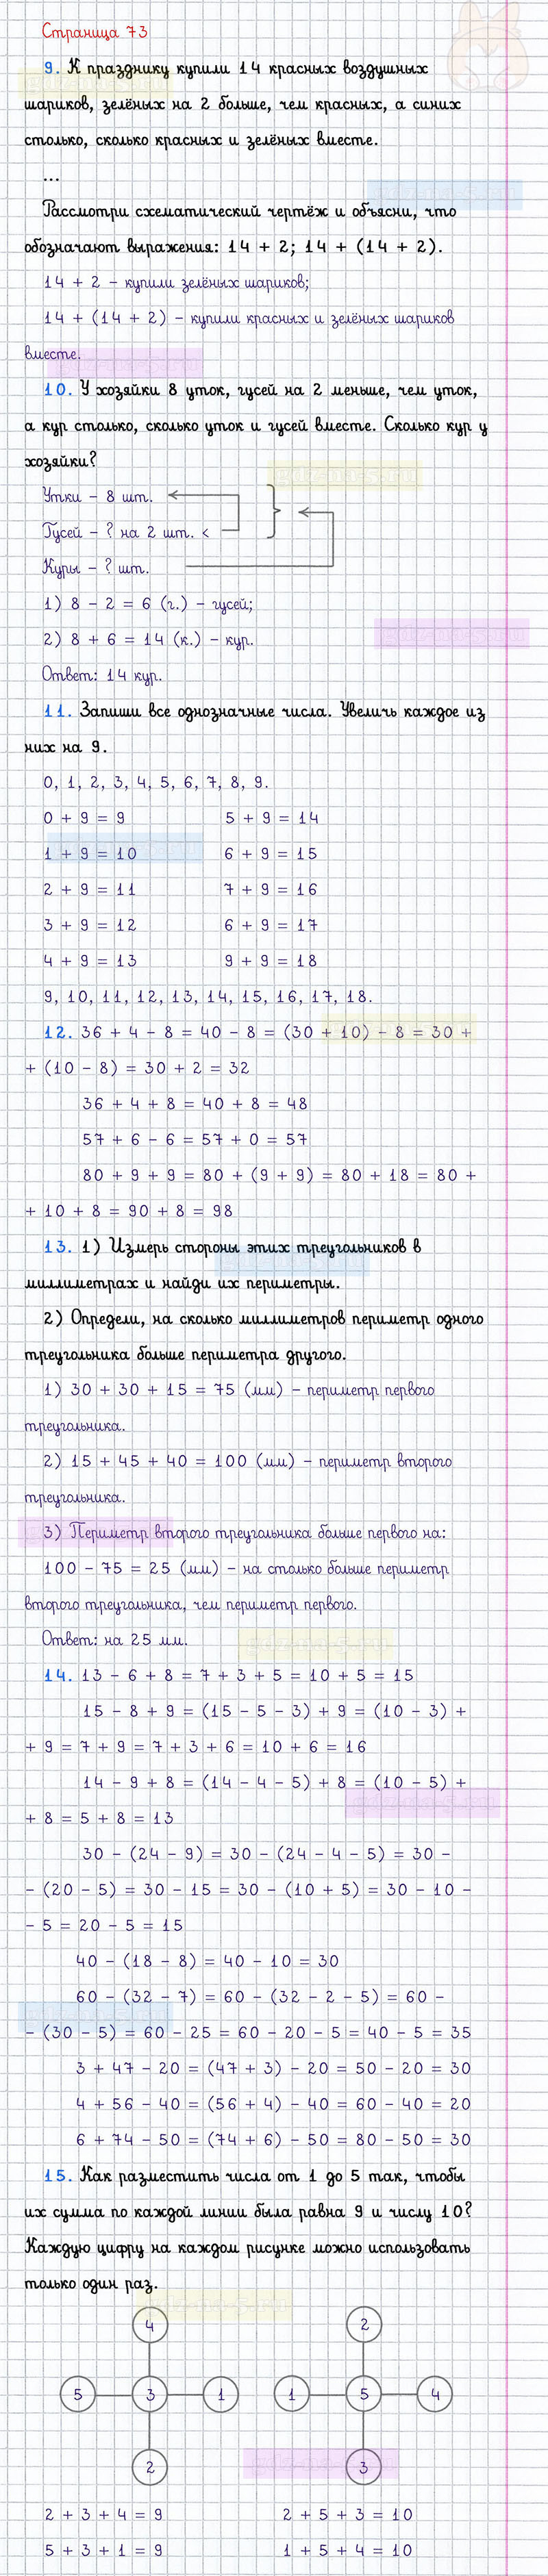 Страница 73
9. К празднику купили 14 красных воздушных
шариков, зелёных на 2 больше, чем красных, а синих
столько, сколько красных и зелёных вместе.
...
Рассмотри схематический чертёж и объясни, что
обозначают выражения: 14 + 2; 14 + (14 + 2).
14 + 2 – купили зелёных шариков;
14 + (14 + 2) – купили красных и зелёных шариков
вместе.
10. У хозяйки 8 уток, гусей на 2 меньше, чем уток,
а кур столько, сколько уток и гусей вместе. Сколько кур у
хозяйки?
Утки – 8 шт.
Гусей – ? на 2 шт. <
Куры – ? шт.
1) 8 – 2 = 6 (г.) – гусей;
2) 8 + 6 = 14 (к.) – кур.
Ответ: 14 кур.
11. Запиши все однозначные числа. Увеличь каждое из
них на 9.
0, 1, 2, 3, 4, 5, 6, 7, 8, 9.
0 + 9 = 9 5 + 9 = 14
1 + 9 = 10 6 + 9 = 15
2 + 9 = 11 7 + 9 = 16
3 + 9 = 12 6 + 9 = 17
4 + 9 = 13 9 + 9 = 18
9, 10, 11, 12, 13, 14, 15, 16, 17, 18.
12. 36 + 4 – 8 = 40 – 8 = (30 + 10) – 8 = 30 +
+ (10 – 8) = 30 + 2 = 32
36 + 4 + 8 = 40 + 8 = 48
57 + 6 – 6 = 57 + 0 = 57
80 + 9 + 9 = 80 + (9 + 9) = 80 + 18 = 80 +
+ 10 + 8 = 90 + 8 = 98
13. 1) Измерь стороны этих треугольников в
миллиметрах и найди их периметры.
2) Определи, на сколько миллиметров периметр одного
треугольника больше периметра другого.
1) 30 + 30 + 15 = 75 (мм) – периметр первого
треугольника.
2) 15 + 45 + 40 = 100 (мм) – периметр второго
треугольника.
3) Периметр второго треугольника больше первого на:
100 – 75 = 25 (мм) – на столько больше периметр
второго треугольника, чем периметр первого.
Ответ: на 25 мм.
14. 13 – 6 + 8 = 7 + 3 + 5 = 10 + 5 = 15
15 – 8 + 9 = (15 – 5 – 3) + 9 = (10 – 3) +
+ 9 = 7 + 9 = 7 + 3 + 6 = 10 + 6 = 16
14 – 9 + 8 = (14 – 4 – 5) + 8 = (10 – 5) +
+ 8 = 5 + 8 = 13
30 – (24 – 9) = 30 – (24 – 4 – 5) = 30 –
– (20 – 5) = 30 – 15 = 30 – (10 + 5) = 30 – 10 –
– 5 = 20 – 5 = 15
40 – (18 – 8) = 40 – 10 = 30
60 – (32 – 7) = 60 – (32 – 2 – 5) = 60 –
– (30 – 5) = 60 – 25 = 60 – 20 – 5 = 40 – 5 = 35
3 + 47 – 20 = (47 + 3) – 20 = 50 – 20 = 30
4 + 56 – 40 = (56 + 4) – 40 = 60 – 40 = 20
6 + 74 – 50 = (74 + 6) – 50 = 80 – 50 = 30
15. Как разместить числа от 1 до 5 так, чтобы
их сумма по каждой линии была равна 9 и числу 10?
Каждую цифру на каждом рисунке можно использовать
только один раз.
4 2
5 3 1 1 5 4
2 3
2 + 3 + 4 = 9 2 + 5 + 3 = 10
5 + 3 + 1 = 9 1 + 5 + 4 = 10